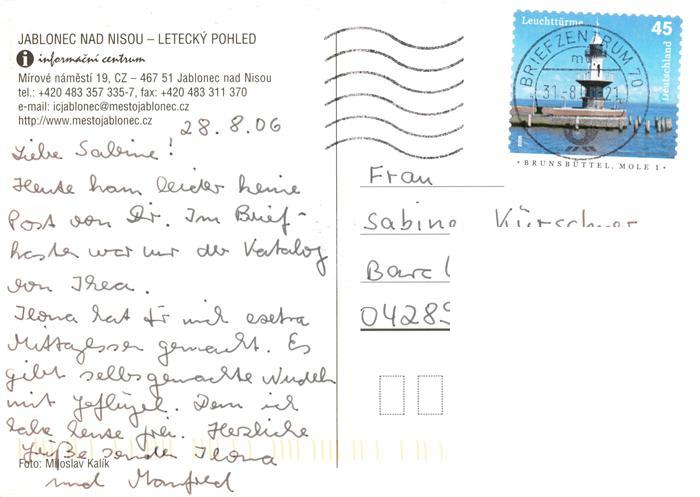 JABLONEC NAD NISOU – LETECKÝ POHLED
i informační centrum
Mírové náměstí 19, CZ – 467 51 Jablonec nad Nisou
tel.: +420 483 357 335-7, fax: +420 483 311 370
e-mail: icjablonec@mestojablonec.cz
http://www.mestojablonec.cz
28.8.06
Liebe Sabine!
Heute kam leider keine
Post von Dir. Im Brief-
kasten war nur der Katalog
von Ikea.
Ilona hat für mich extra
Mittagessen gemacht. Es
gibt selbsgemachte Nudeln
mit Geflügel. Denn ich
habe heute frei. Herzliche
Grüße senden Ilona
und Manfred
Foto: Miloslav Kalík
Leuchttürme
45
Deutschland
BRIEFZENTRUM 70
BRUNSBÜTTEL, MOLE 1
Frau
Sabine
0428